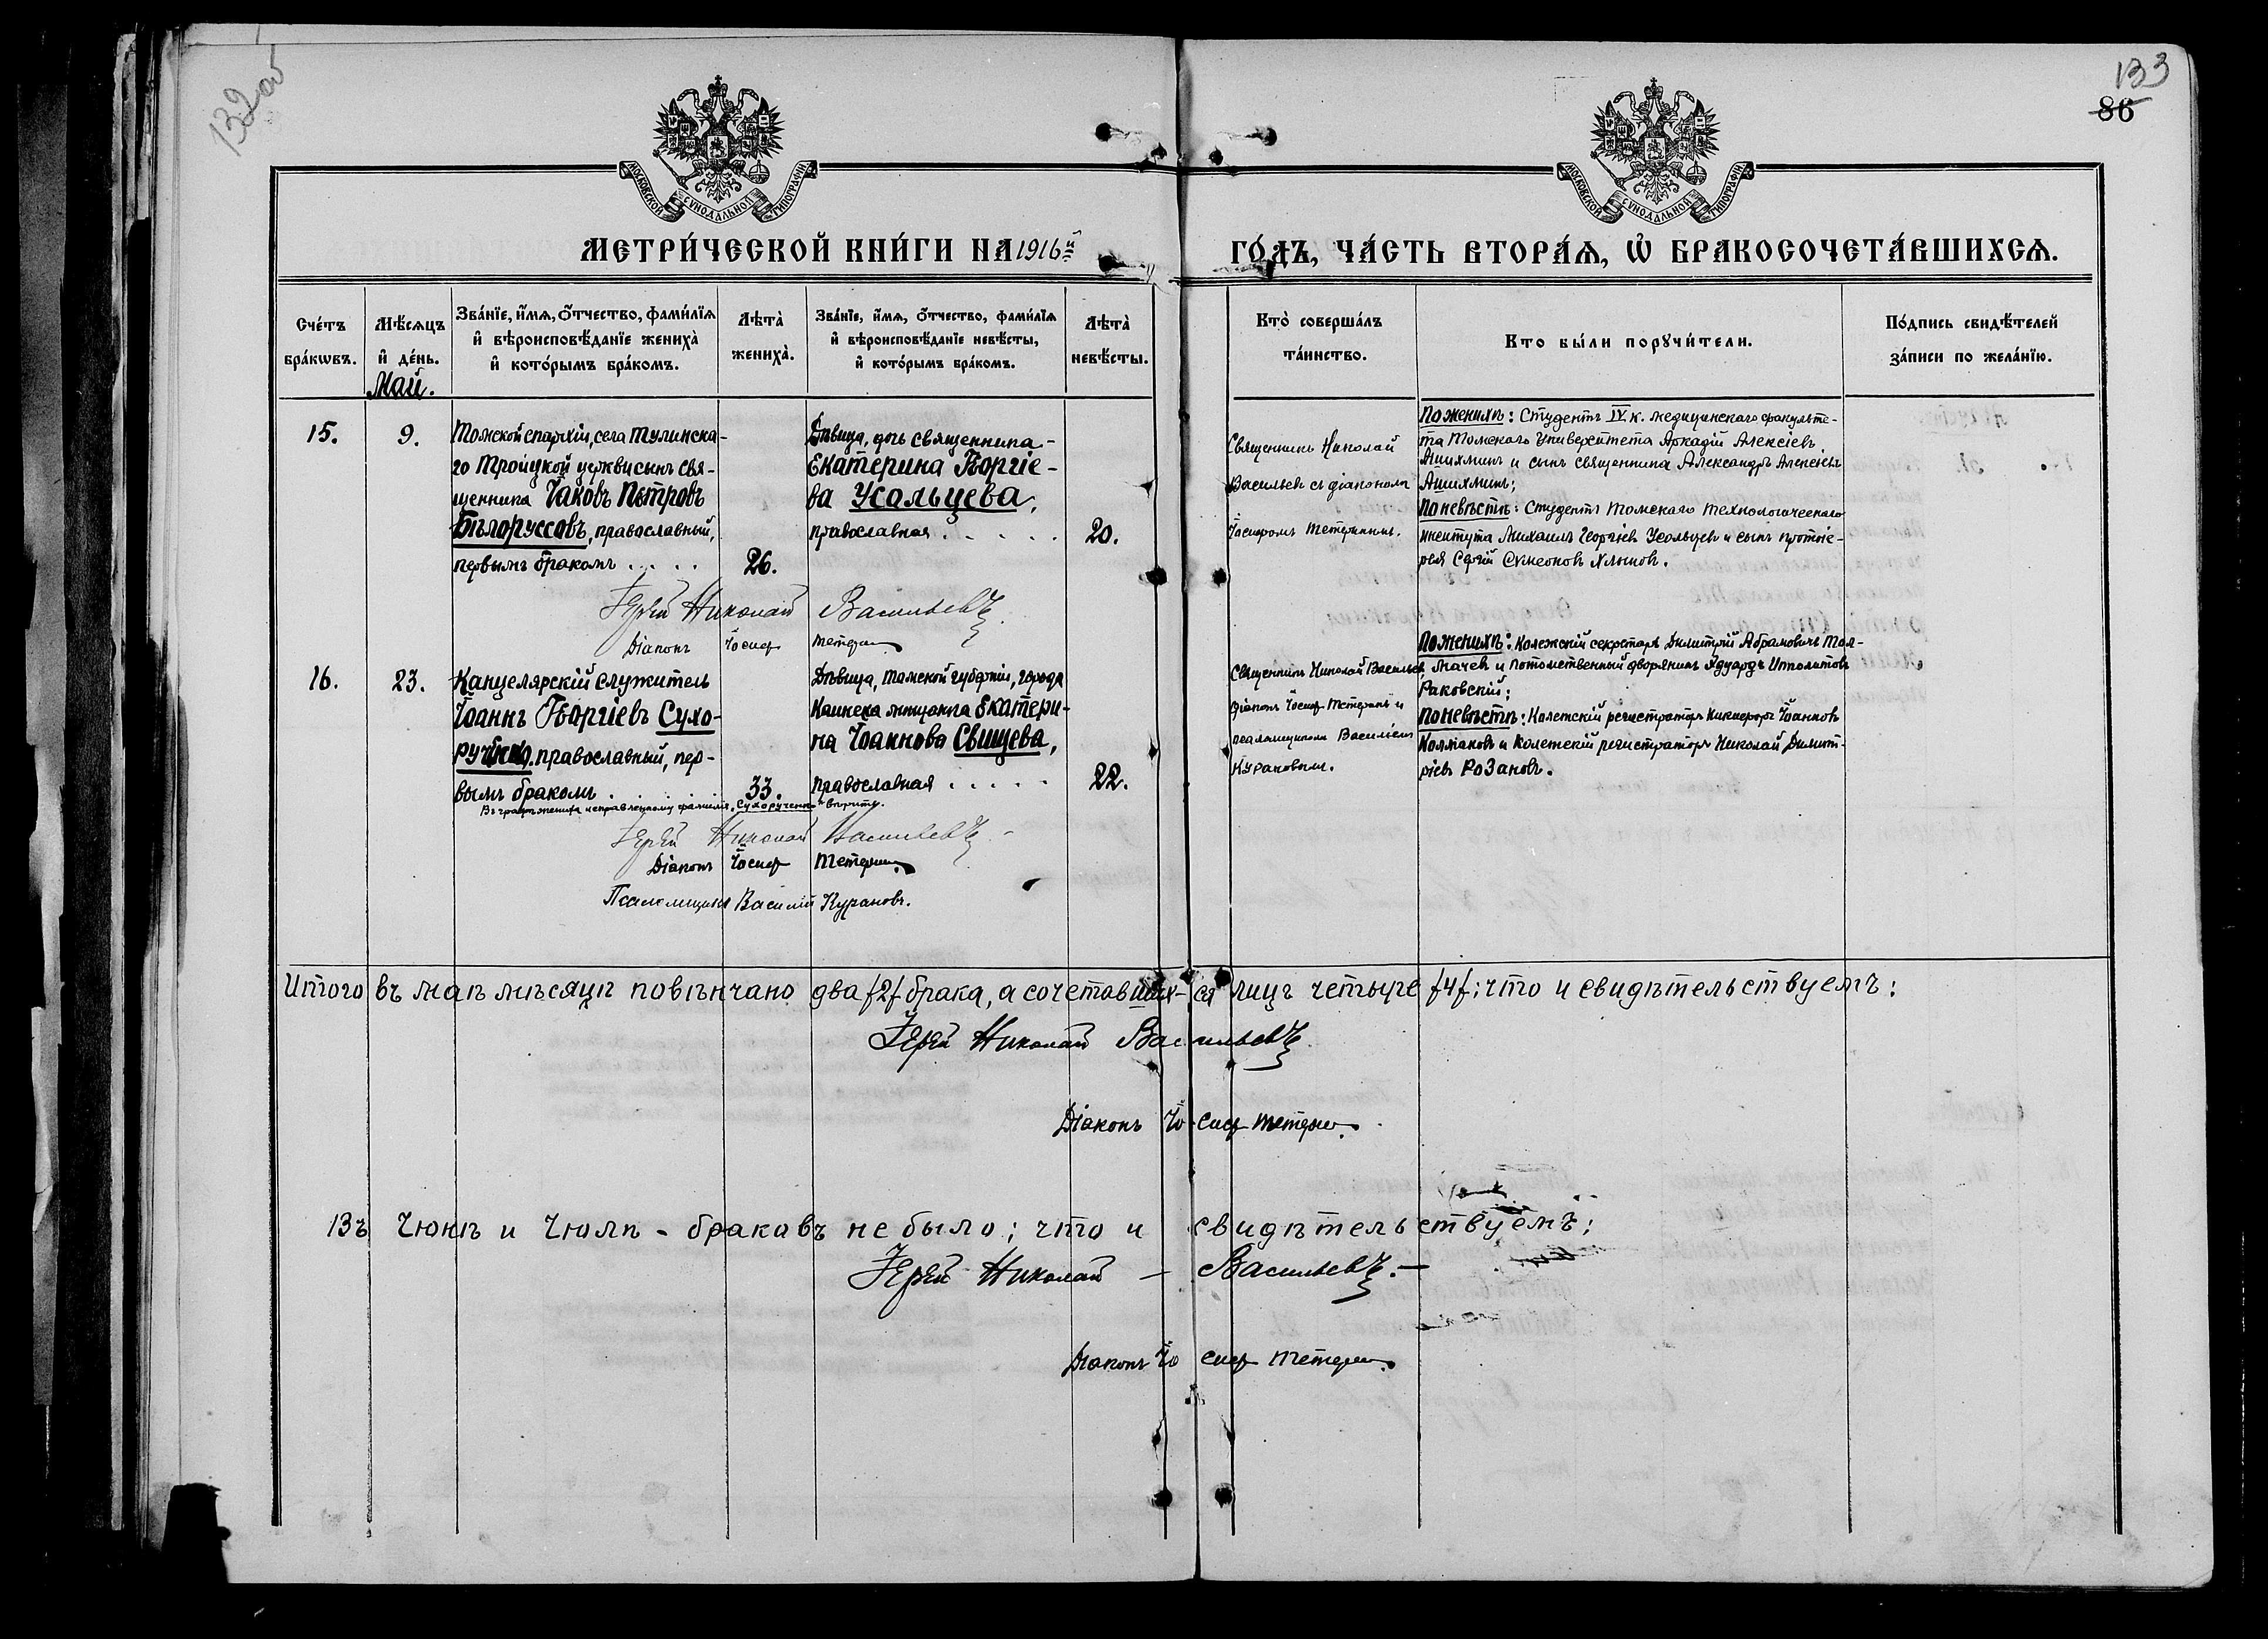 132об
133
86
МОСКОВСКОЙ СУНОДАЛЬНОЙ ТИПОГРАФІИ
МОСКОВСКОЙ СУНОДАЛЬНОЙ ТИПОГРАФІИ
МЕТРИ́ЧЕСКОЙ КНИ́ГИ НА 1916й ГО́ДЪ, ЧА́СТЬ ВТОРА́Ѧ, Ѽ БРАКОСОЧЕТА́ВШИХСѦ.
Сче́тъ бра́кѡвъ.
Мѣ́сѧцъ и҆ де́нь.
Зва́нїе, и҆́мѧ, ѻ҆́тчество, фами́лїѧ и҆ вѣроисповѣ́данїе жениха̀ и҆ кото́рымъ бра́комъ.
Лѣта̀ жениха̀.
Зва́нїе, и҆́мѧ, ѻ҆́тчество, фами́лїѧ и҆ вѣроисповѣ́данїе невѣ́сты, и҆ кото́рымъ бра́комъ.
Лѣта̀ невѣ́сты.
Кто̀ соверша́лъ та́инство.
Кто бы́ли порꙋчи́тели.
По́дпись свидѣ́телей за́писи по жела́нїю.
Май.
15.
9.
Томской епархіи, села Тулинска-
го Троицкой церкви сынъ свя-
щенника Іаковъ Петровъ
Бѣлоруссовъ, православный,
первымъ бракомъ . . . .
26.
Дѣвица, дочь священника -
Екатерина Георгіе-
ва Усольцева,
православная . . . . .
20.
Священникъ Николай
Васильевъ съ діакономъ
Іосифомъ Тетеринымъ.
По женихѣ: Студентъ IV к. медицинскаго факульте-
та Томскаго Университета Аркадій Алексіевъ
Ашихминъ и сынъ священника Александръ Алексіевъ
Ашихминъ;
По невѣстѣ: Студентъ Томскаго Технологическаго
института Михаилъ Георгіевъ Усольцевъ и сынъ протоіе-
рея Сергій Симеоновъ Хлыновъ.
Іерей Николай Васильевъ
Діаконъ Іосиф Тетерин
16.
23.
Канцелярскій служитель
Іоаннъ Георгіевъ Сухо-
православный, пер-
вымъ бракомъ . . . .
33.
Дѣвица, Томской губерніи, города
Каинска мѣщанка Екатери-
на Іоаннова Свищева,
православная . . . . .
22.
Въ графѣ жениха исправленному фамилія "Сухорученко" вѣрить.
Священникъ Николай Васильев,
діаконъ Іосиф Тетеринъ и
псаломщикъ Василіемъ
Курановым.
По женихѣ: Колежскій секретарь Димитрій Абрамовичъ Тол-
мачевъ и потомственный дворянинъ Эдуардъ Ипполитовъ
Раковскій;
По невѣстѣ: Колежскій регистраторъ Никифоръ Іоанновъ
Колмаковъ и Колежскій регистраторъ Николай Димит-
ріевъ Розановъ.
Іерей Николай Васильевъ -
Діаконъ Іосиф Тетерин
Псаломщикъ Василій Курановъ.
Итого въ маѣ мѣсяцѣ повѣнчано два /2/ брака, а сочетавших-ся лицъ четыре /4/; что и свидѣтельствуемъ:
Іерей Николай Васильевъ
Діаконъ Іосиф Тетерин.
Въ Іюнѣ и Іюлѣ - браковъ не было; что и свидѣтельствуемъ:
Іерей Николай — Васильевъ. —
Діаконъ Іосиф Тетерин.